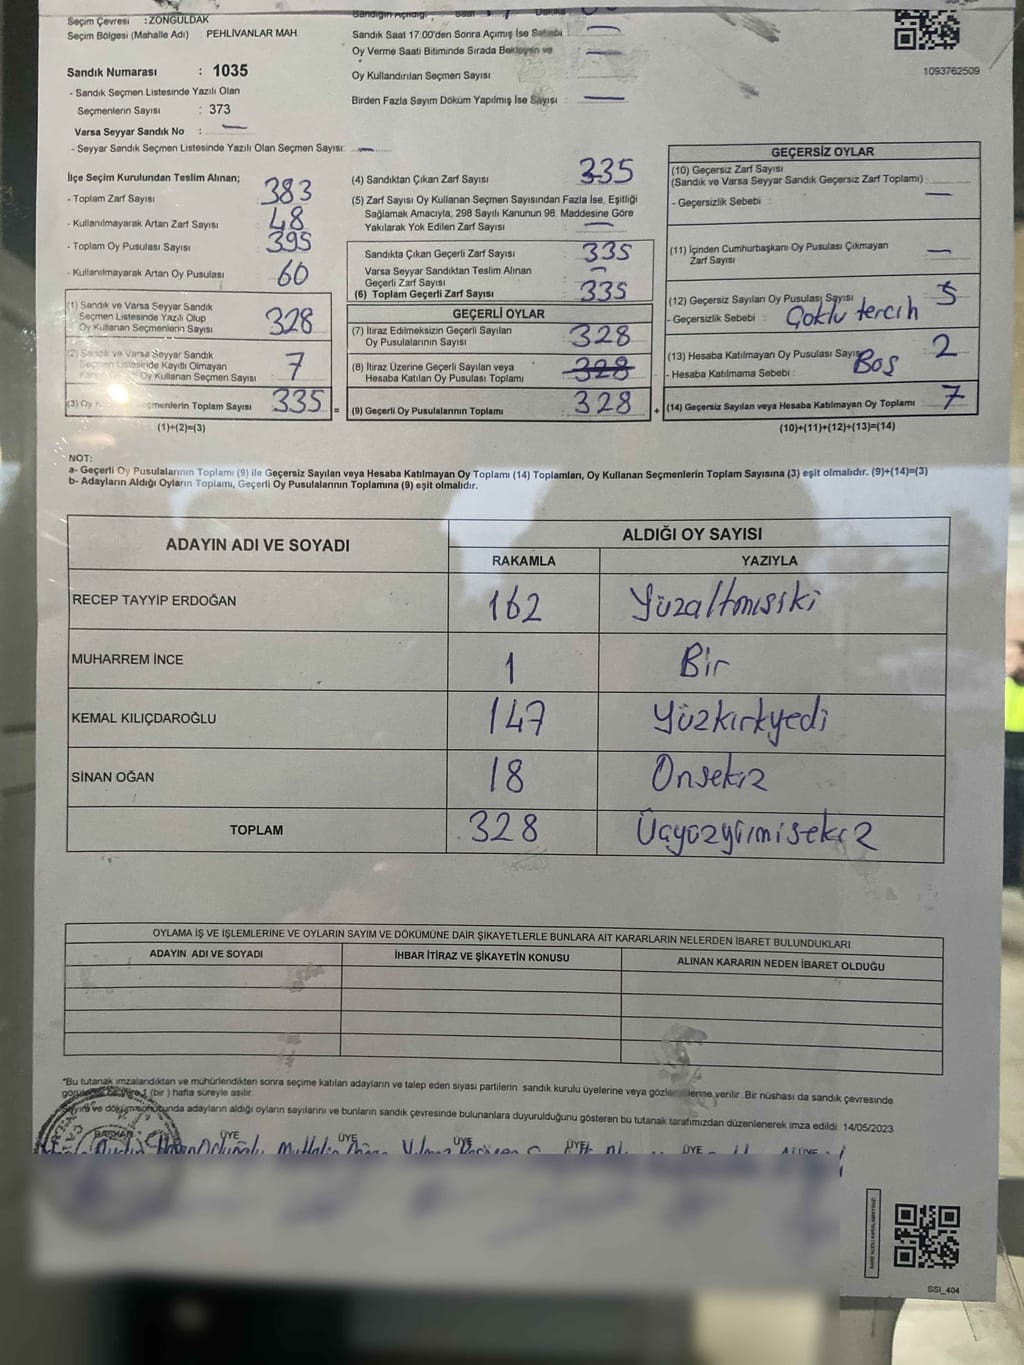 Seçim Çevresi : ZONGULDAK
Seçim Bölgesi (Mahalle Adı) PEHLİVANLAR MAH.
Sandık Numarası : 1035
- Sandık Seçmen Listesinde Yazılı Olan
Seçmenlerin Sayısı : 373
Varsa Seyyar Sandık No :
- Seyyar Sandık Seçmen Listesinde Yazılı Olan Seçmen Sayısı:
Sandığın Açıldığı: Saat
Sandık Saat 17:00'den Sonra Açımış İse Sebebi
Oy Verme Saati Bitiminde Sırada Bekleyen ve
Oy Kullandırılan Seçmen Sayısı :
Birden Fazla Sayım Döküm Yapılmış İse Sayısı :
1093762509
İlçe Seçim Kurulundan Teslim Alınan;
- Toplam Zarf Sayısı 383
- Kullanılmayarak Artan Zarf Sayısı 48
- Toplam Oy Pusulası Sayısı 395
- Kullanılmayarak Artan Oy Pusulası 60
(1) Sandık ve Varsa Seyyar Sandık
Seçmen Listesinde Yazılı Olup
Oy Kullanan Seçmenlerin Sayısı 328
(2) Sandık ve Varsa Seyyar Sandık
Seçmen Listesinde Kayıtlı Olmayan
Oy Kullanan Seçmen Sayısı 7
(3) Oy Seçmenlerin Toplam Sayısı 335 =
(1)+(2)=(3)
(4) Sandıktan Çıkan Zarf Sayısı 335
(5) Zarf Sayısı Oy Kullanan Seçmen Sayısından Fazla İse, Eşitliği
Sağlamak Amacıyla, 298 Sayılı Kanunun 98. Maddesine Göre
Yakılarak Yok Edilen Zarf Sayısı :
Sandıkta Çıkan Geçerli Zarf Sayısı 335
Varsa Seyyar Sandıktan Teslim Alınan
Geçerli Zarf Sayısı :
(6) Toplam Geçerli Zarf Sayısı 335
GEÇERLİ OYLAR
(7) İtiraz Edilmeksizin Geçerli Sayılan
Oy Pusulalarının Sayısı 328
(8) İtiraz Üzerine Geçerli Sayılan veya
Hesaba Katılan Oy Pusulası Toplamı 328
(9) Geçerli Oy Pusulalarının Toplamı 328 +
GEÇERSİZ OYLAR
(10) Geçersiz Zarf Sayısı
(Sandık ve Varsa Seyyar Sandık Geçersiz Zarf Toplamı) :
- Geçersizlik Sebebi :
(11) İçinden Cumhurbaşkanı Oy Pusulası Çıkmayan
Zarf Sayısı
(12) Geçersiz Sayılan Oy Pusulası Sayısı 5
- Geçersizlik Sebebi : Çoklu tercih
(13) Hesaba Katılmayan Oy Pusulası Sayısı 2
- Hesaba Katılmama Sebebi : Boş
(14) Geçersiz Sayılan veya Hesaba Katılmayan Oy Toplamı 7
(10)+(11)+(12)+(13)=(14)
NOT:
a- Geçerli Oy Pusulalarının Toplamı (9) ile Geçersiz Sayılan veya Hesaba Katılmayan Oy Toplamı (14) Toplamları, Oy Kullanan Seçmenlerin Toplam Sayısına (3) eşit olmalıdır. (9)+(14)=(3)
b- Adayların Aldığı Oyların Toplamı, Geçerli Oy Pusulalarının Toplamına (9) eşit olmalıdır.
ADAYIN ADI VE SOYADI
ALDIĞI OY SAYISI
RAKAMLA YAZIYLA
RECEP TAYYİP ERDOĞAN 162 Yüzaltmışiki
MUHARREM İNCE 1 Bir
KEMAL KILIÇDAROĞLU 147 Yüzkırkyedi
SİNAN OĞAN 18 Onsekiz
TOPLAM 328 Üçyüzyirmisekiz
OYLAMA İŞ VE İŞLEMLERİNE VE OYLARIN SAYIM VE DÖKÜMÜNE DAİR ŞİKAYETLERLE BUNLARA AİT KARARLARIN NELERDEN İBARET BULUNDUKLARI
ADAYIN ADI VE SOYADI İHBAR İTİRAZ VE ŞİKAYETİN KONUSU ALINAN KARARIN NEDEN İBARET OLDUĞU
*Bu tutanak imzalandıktan ve mühürlendikten sonra seçime katılan adayların ve talep eden siyasi partilerin sandık kurulu üyelerine veya verilir. Bir nüshası da sandık çevresinde
1 (bir) hafta süreyle asılır.
Sayım ve döküm sonucunda adayların aldığı oyların sayılarını ve bunların sandık çevresinde bulunanlara duyurulduğunu gösteren bu tutanak tarafımızdan düzenlenerek imza edildi. 14/05/2023
BAŞKAN ÜYE ÜYE ÜYE ÜYE ÜYE
SSI_404